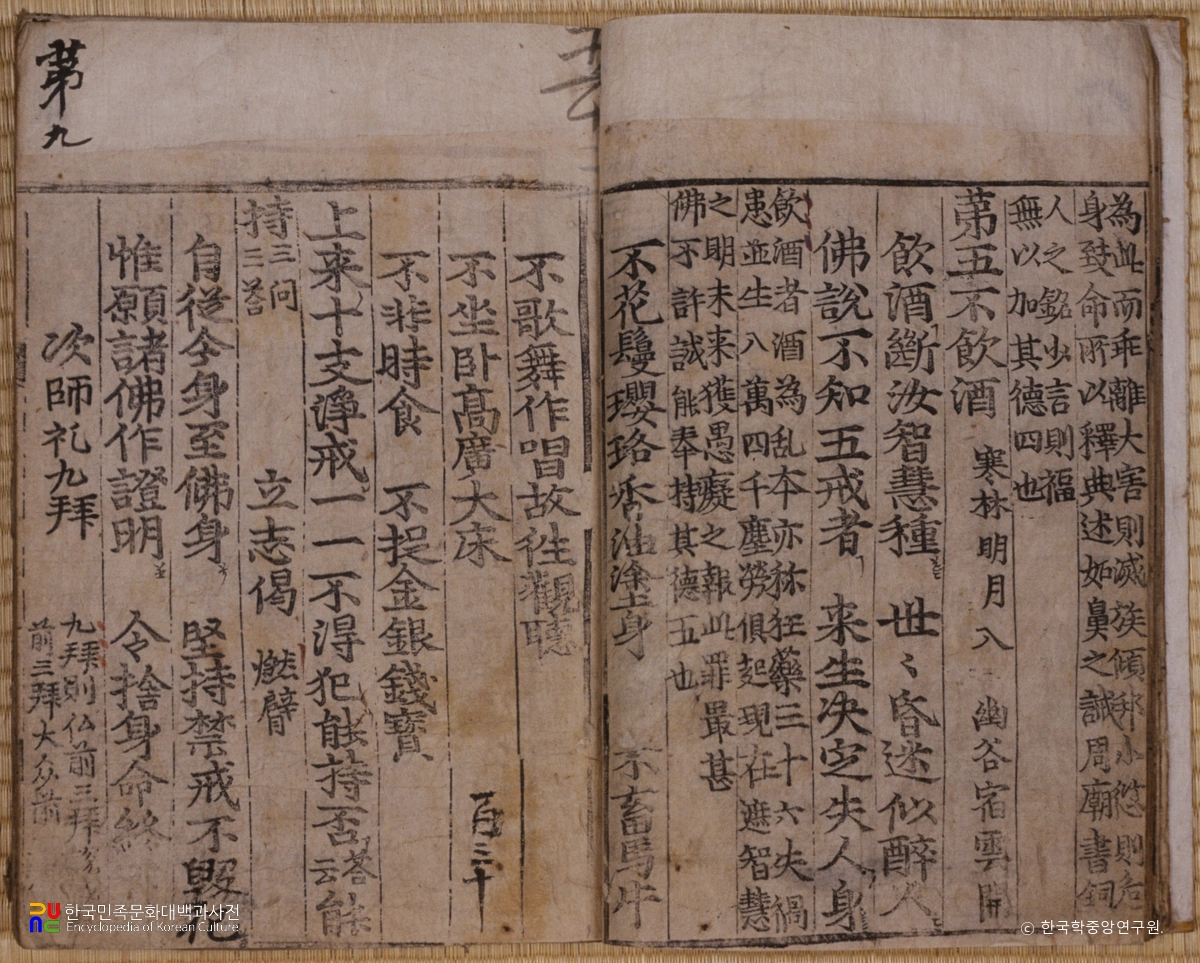 為此而乖離大害則滅族傾邦小愆則危
身致命所以釋典述如鼻之誡周廟書銅
人之銘少言則福
無以加其德四也
第五不飲酒 寒林明月入 幽谷宿雲開
飲酒斷汝智慧種 世〻昏迷似醉人
佛說不知五戒者 来生决定失人身
飲酒者酒為乱本亦称狂藥三十六失禍
患並生八萬四千塵勞俱起現在遮智慧
之明未来獲愚癡之報此罪最甚
佛不許誠能奉持其德五也
不花鬘瓔珞香油塗身 不畜馬牛
不歌舞作唱故徃觀聽
不坐卧髙廣大床 百三十
不非時食 不捉金銀錢寶
上来十支淨戒一一不得犯能持否 答云能
持 三问三答 立志偈 燃臂
自從今身至佛身 堅持禁戒不毀犯
惟願諸佛作證明 今捨身命終
次師礼九拜 九拜則仏前三拜
前三拜大众前
第九
한국민족문화대백과사전
Encyclopedia of Korean Culture
ⓒ 한국학중앙연구원.